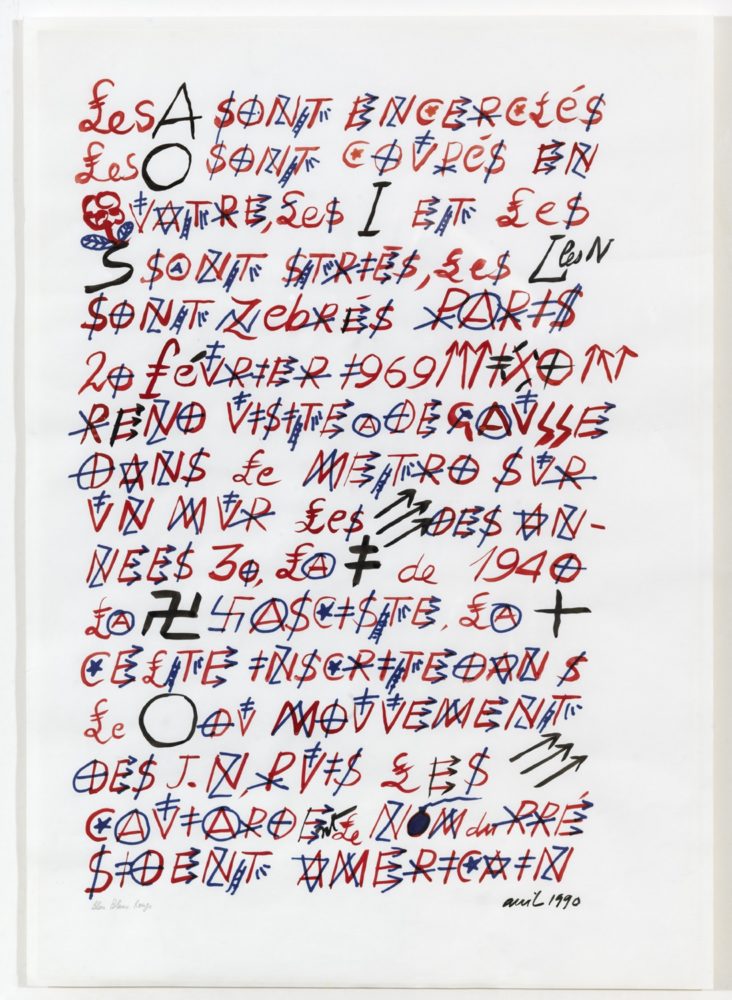 Les A SONT ENCERCLéS
Les O SONT COUPéS EN
QUATRE, Les I ET Les
S SONT STRIÉS, Les L les N
SONT ZebRÉS PARIS
20 FéVRIER 1969 NIXON
REND VISITE A DEGAULLE
DANS Le METRO SUR
UN MUR Les ↗↗↗ DES AN-
NEES 30, LA ‡ de 1940
LA 卐 FASCISTE, LA +
CELTE INSCRITE DANS
Le O DU MOUVEMENT
DES J.N, PUIS LES ↗↗↗
CAVIARDEnt Le NOM du PRÉ
SIDENT AMERICAIN
Bleu Blanc Rouge
avril 1990